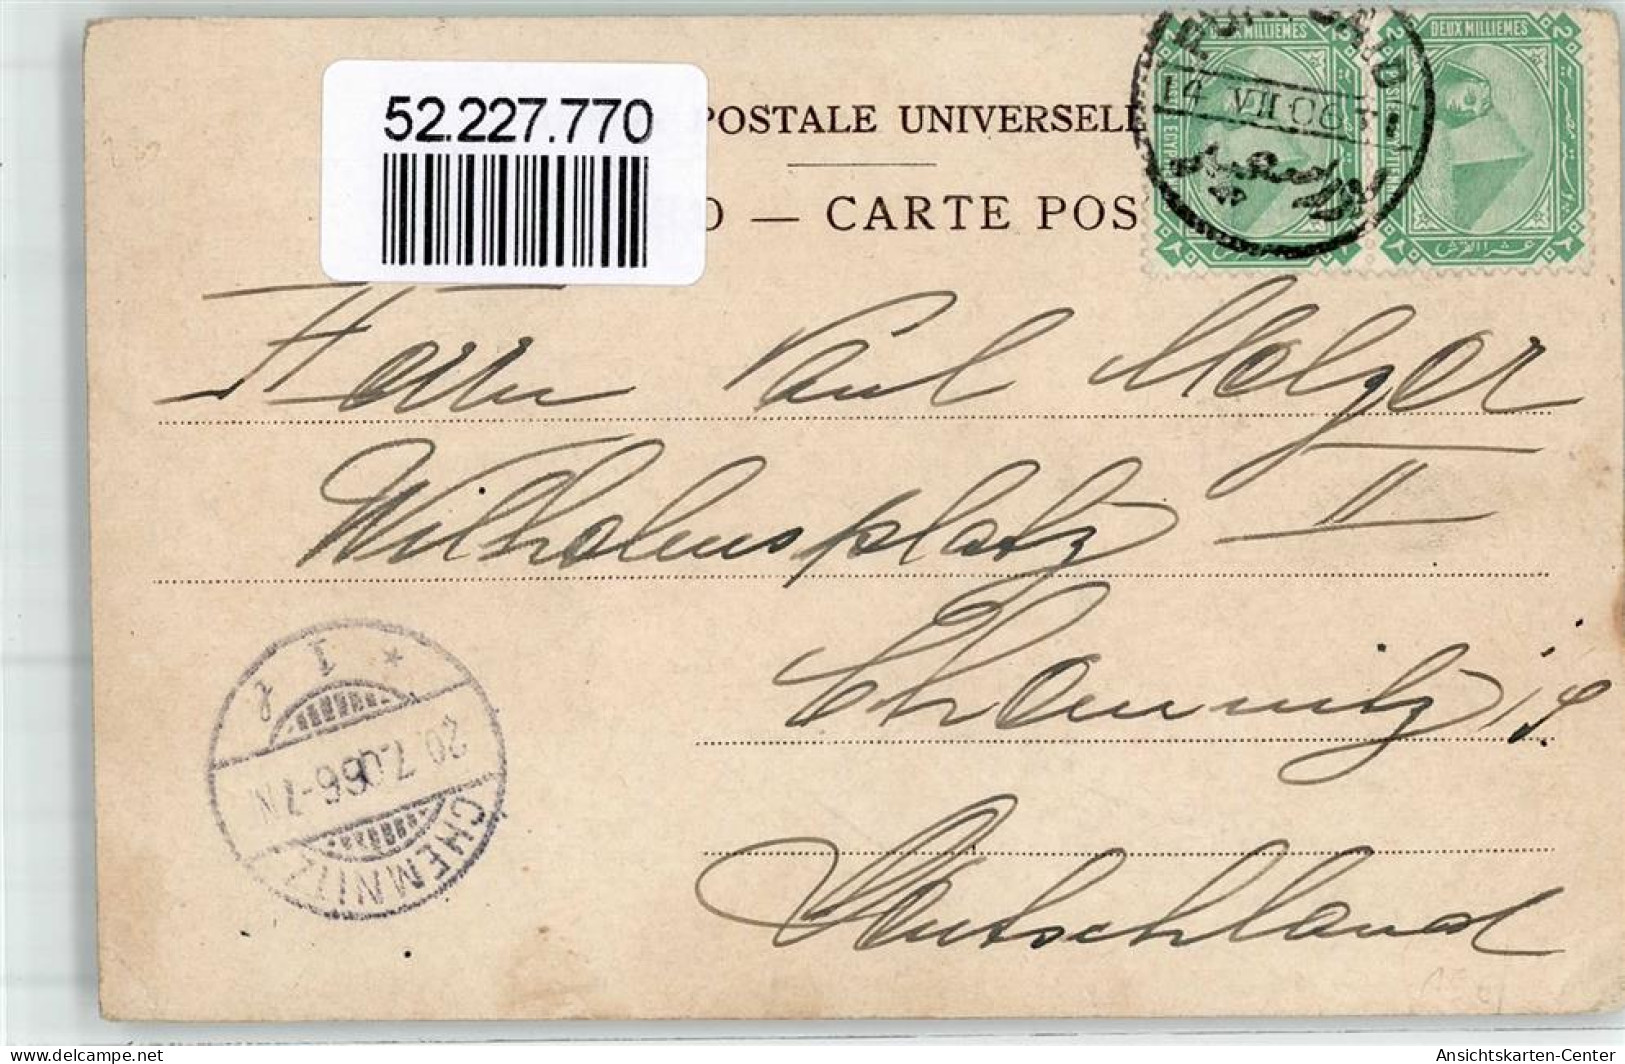 52.227.770
POSTALE UNIVERSELL
O — CARTE POS
PORT SAID
14 VII 06
بورسعيد
DEUX MILLIEMES
DEUX MILLIEMES
2
2
عشر القرش
Herrn Paul Melzer
Wilhelmsplatz II
Chemnitz i/S.
Deutschland
CHEMNITZ
20.7.06 6-7 N
* 1
Ansichtskarten-Center